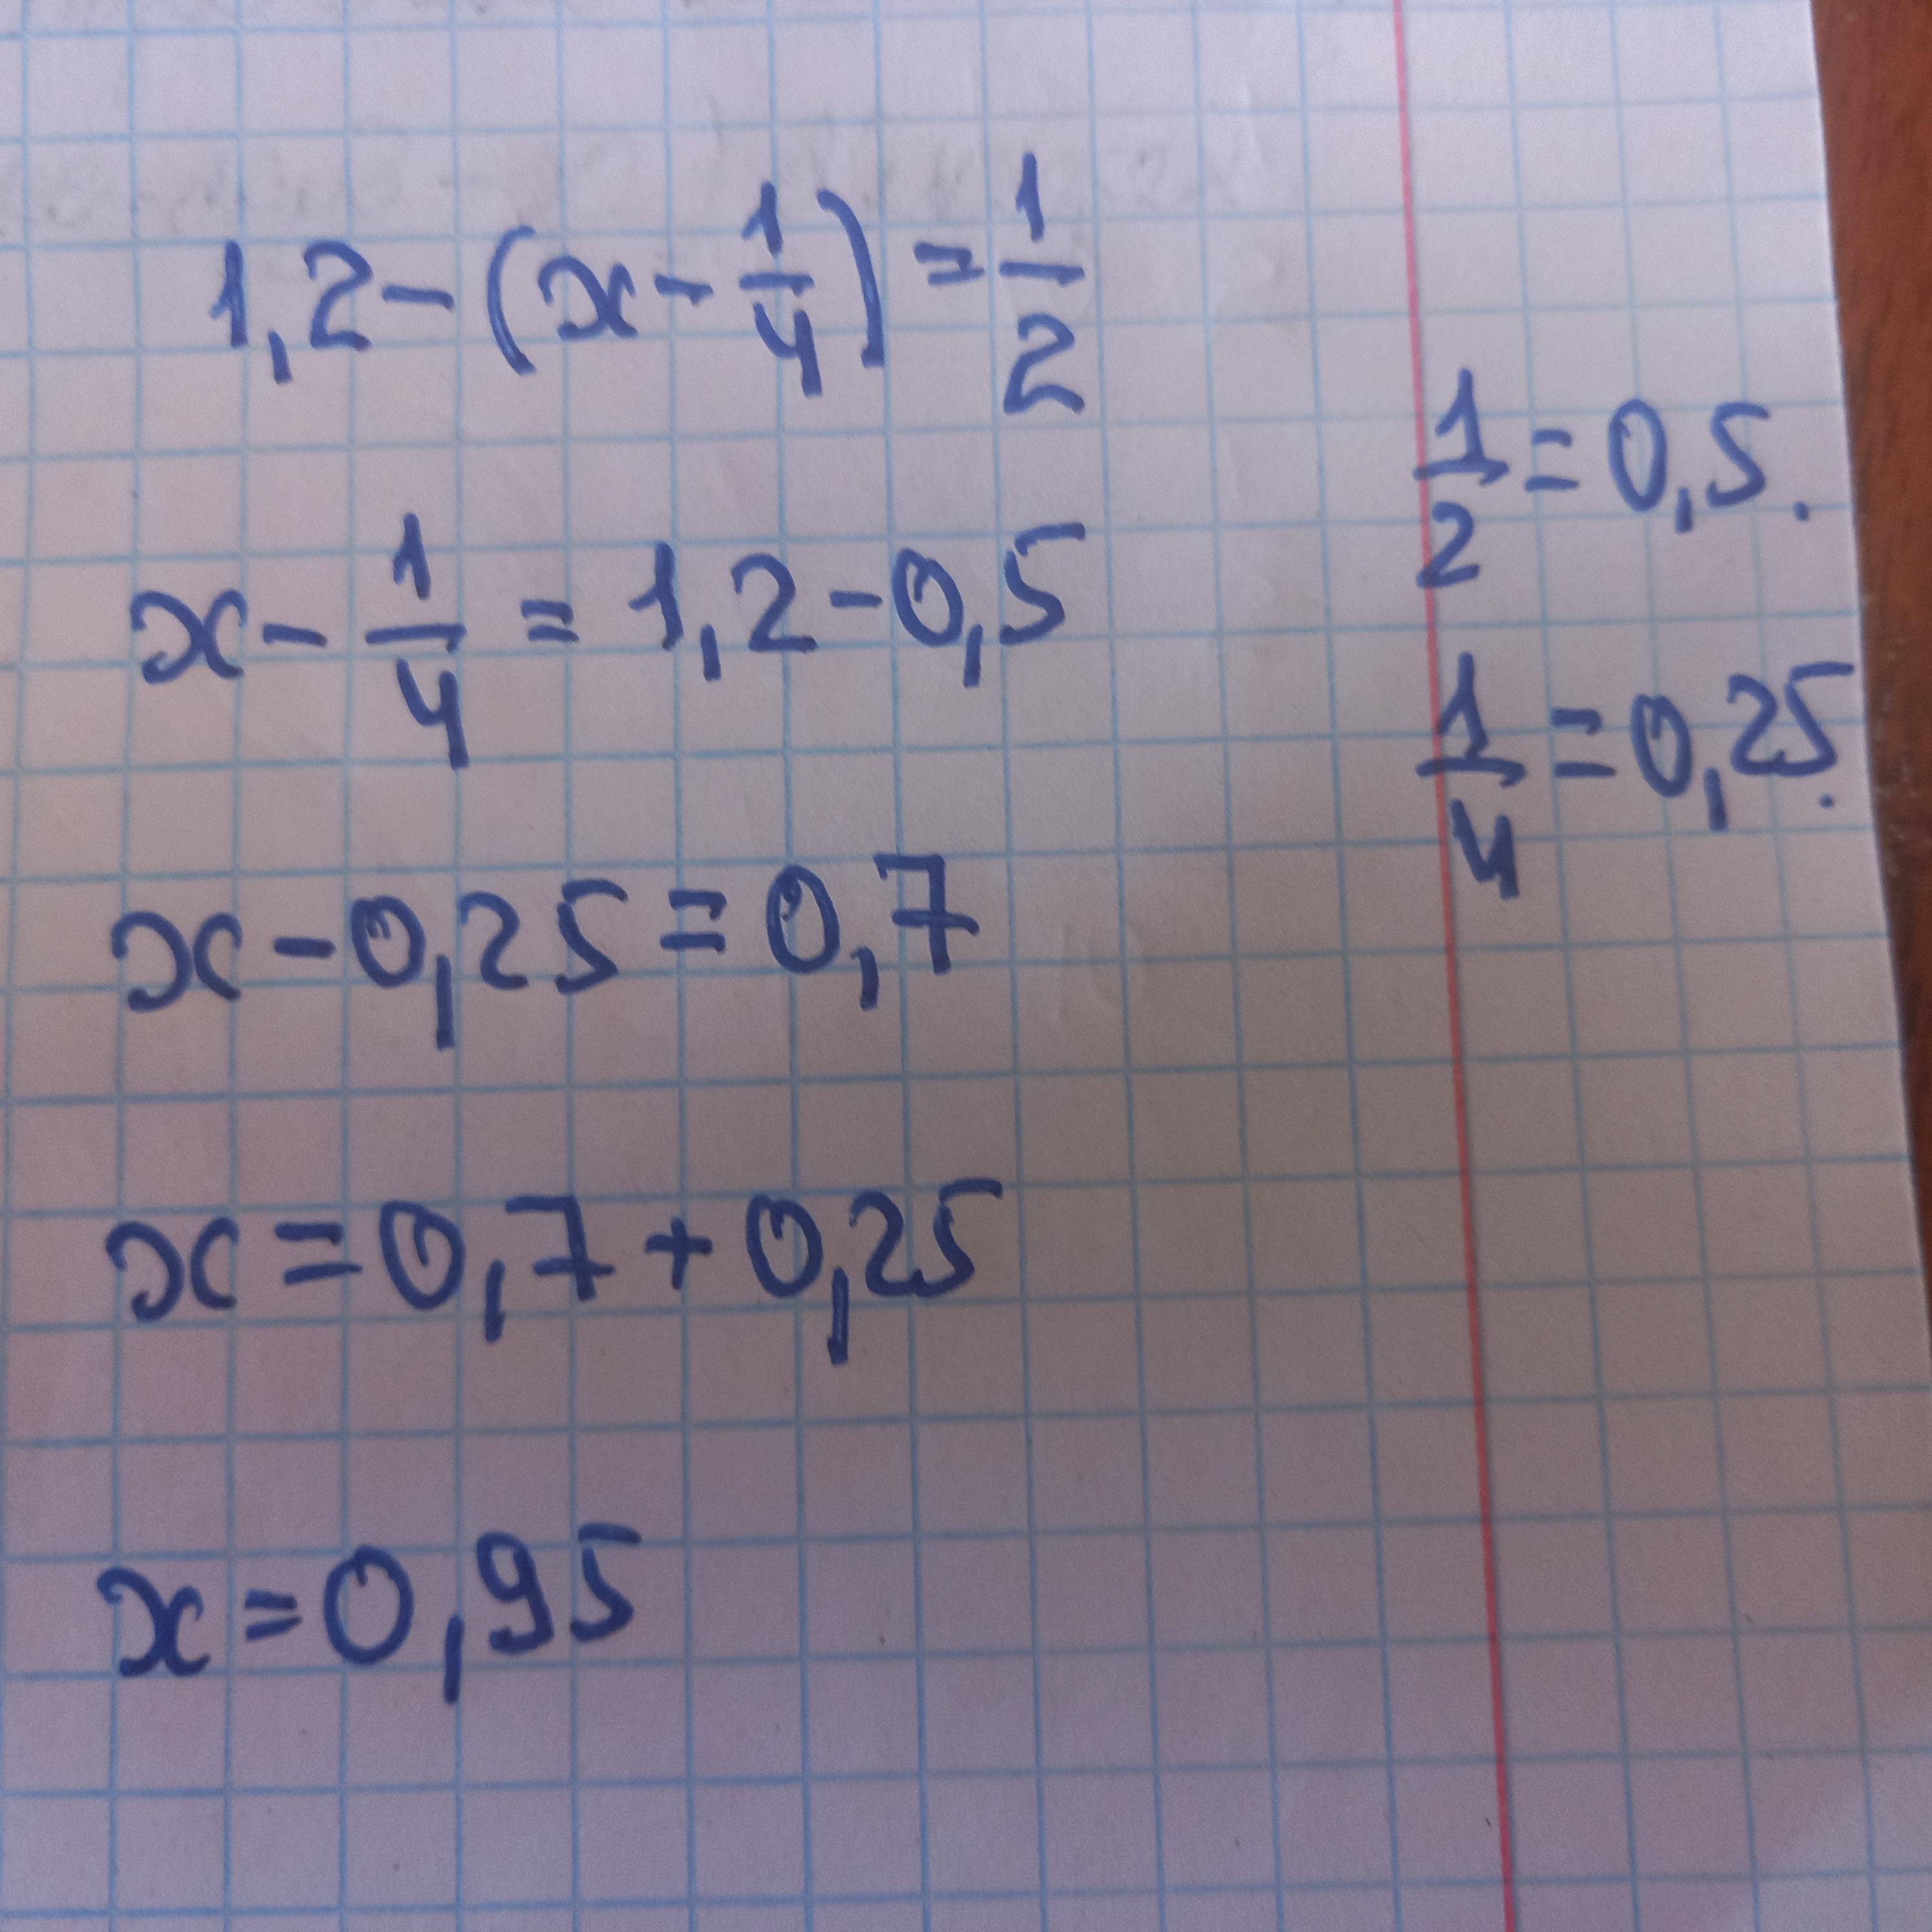 1,2 - (x - 1/4) = 1/2
x - 1/4 = 1,2 - 0,5
x - 0,25 = 0,7
x = 0,7 + 0,25
x = 0,95
1/2 = 0,5.
1/4 = 0,25.